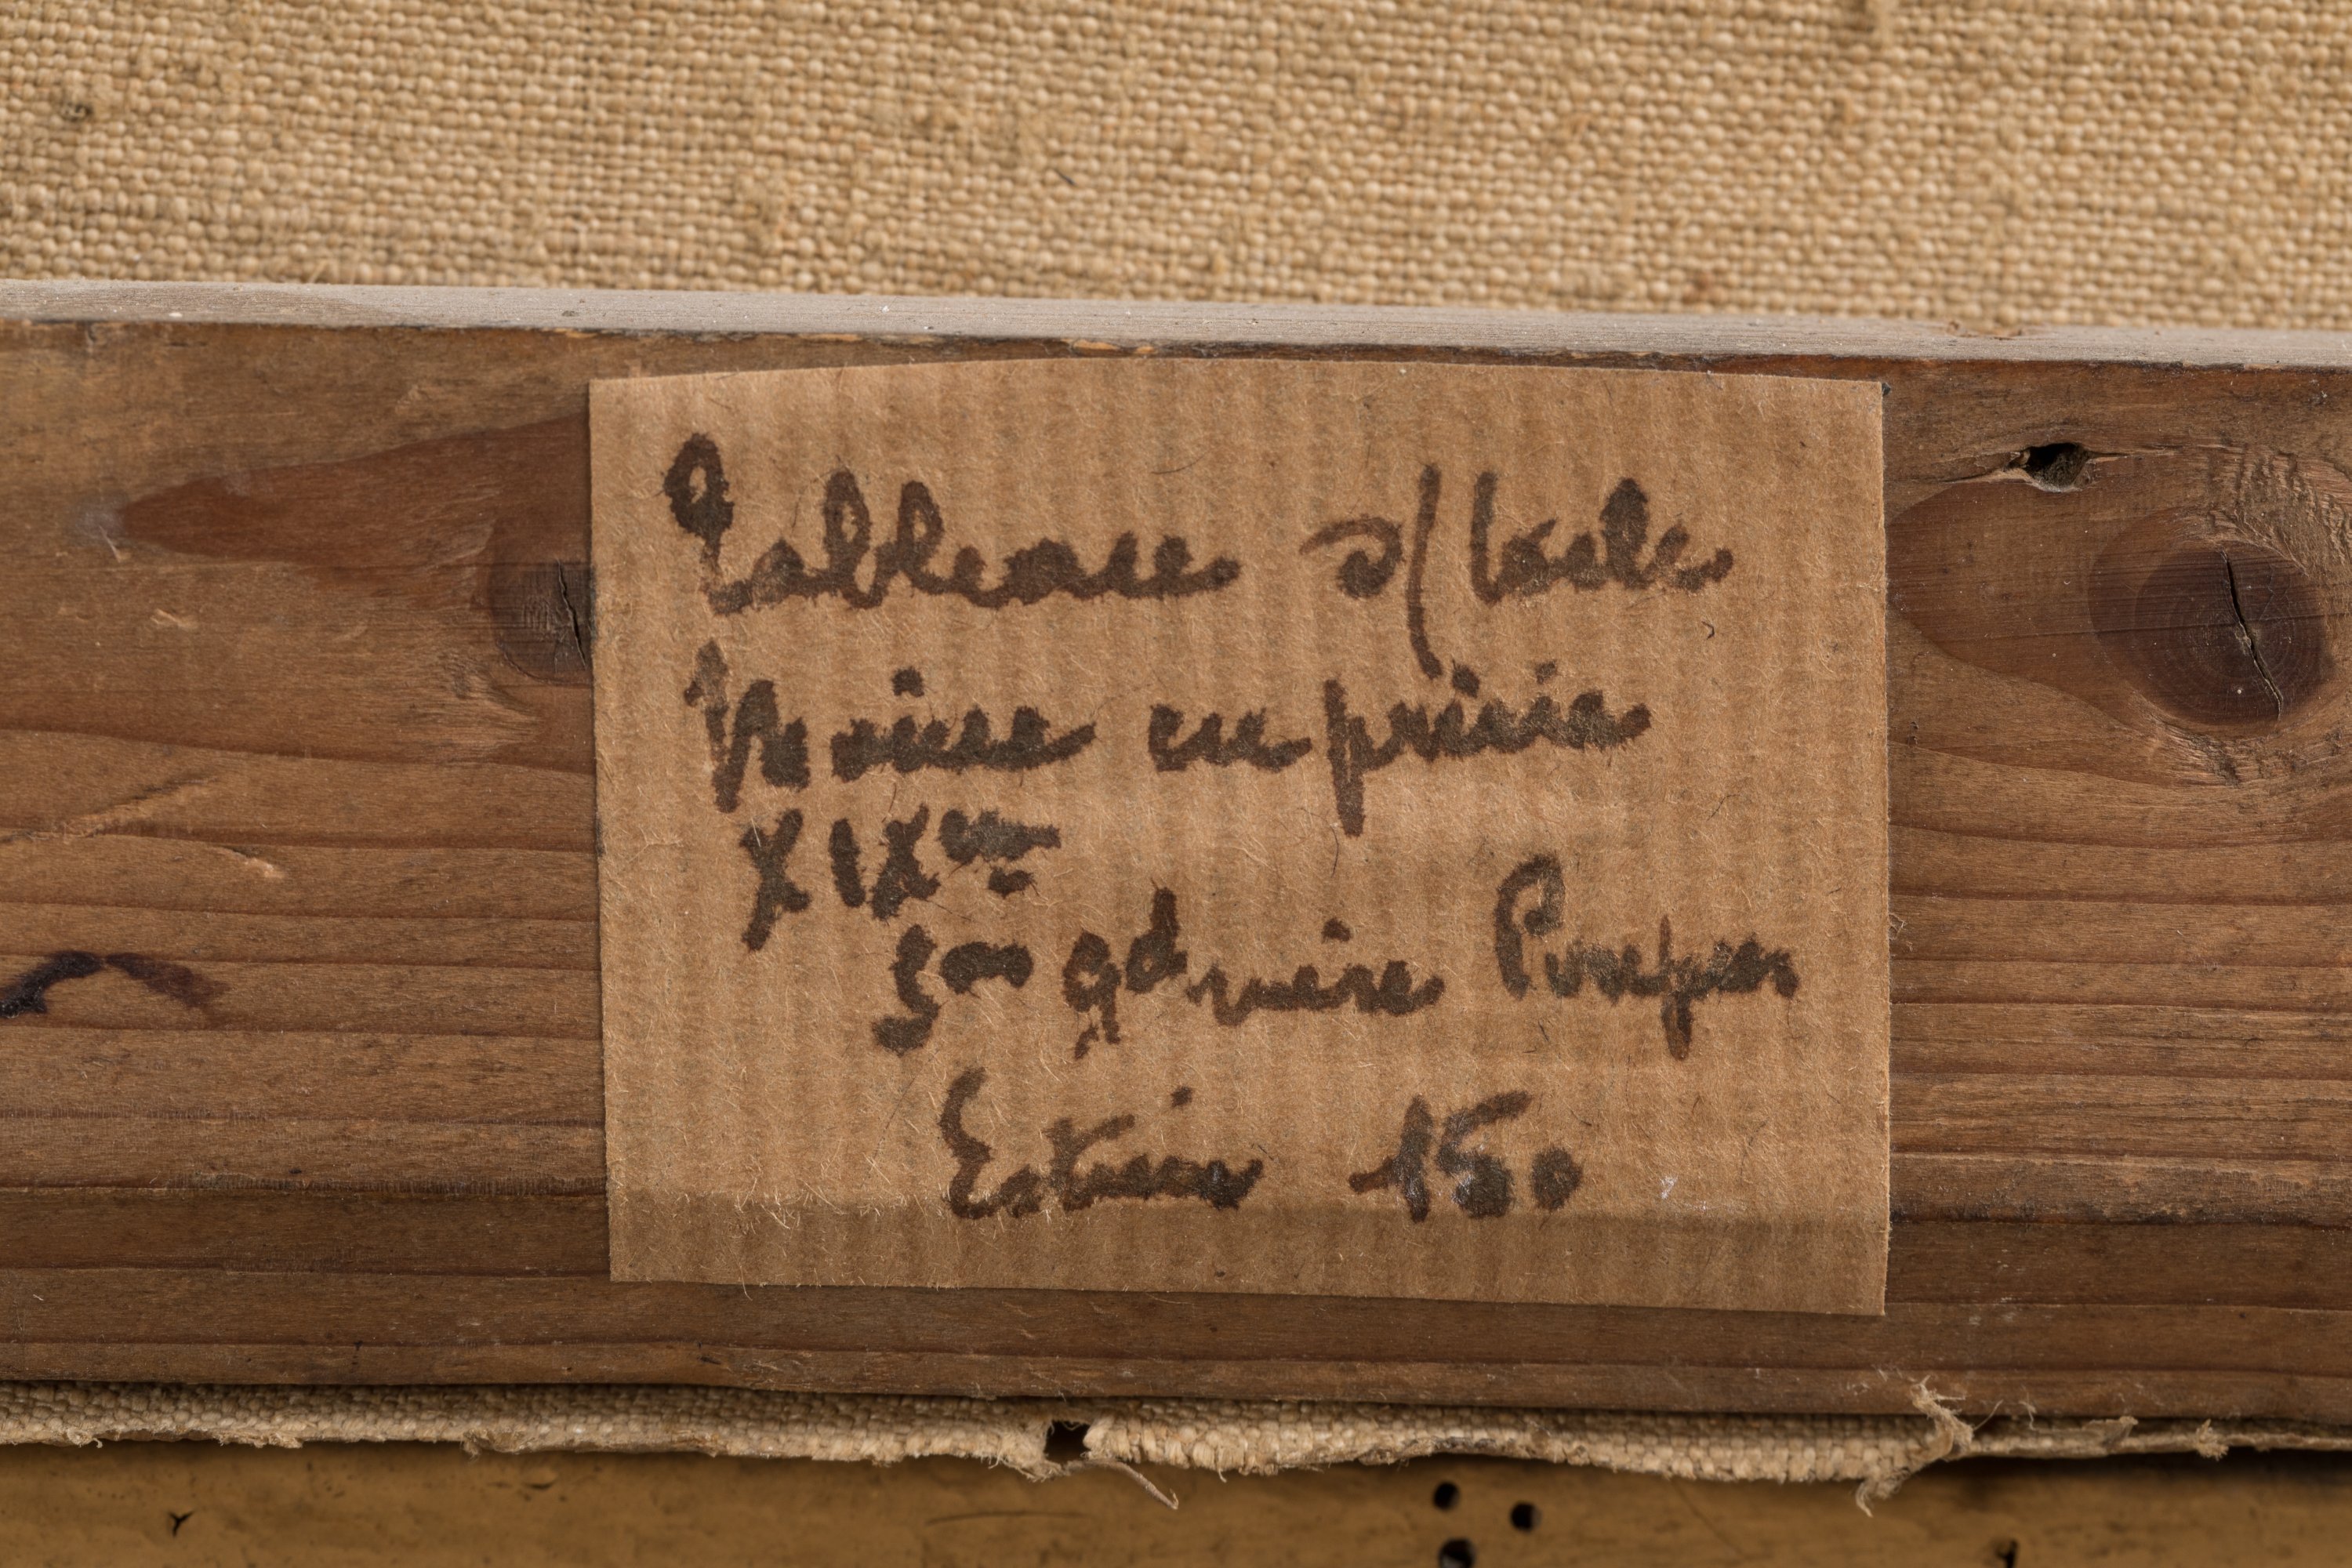 Tableau s/ toile
Moine en prière
XIXème
Son gd mère Pompon
Estim 150